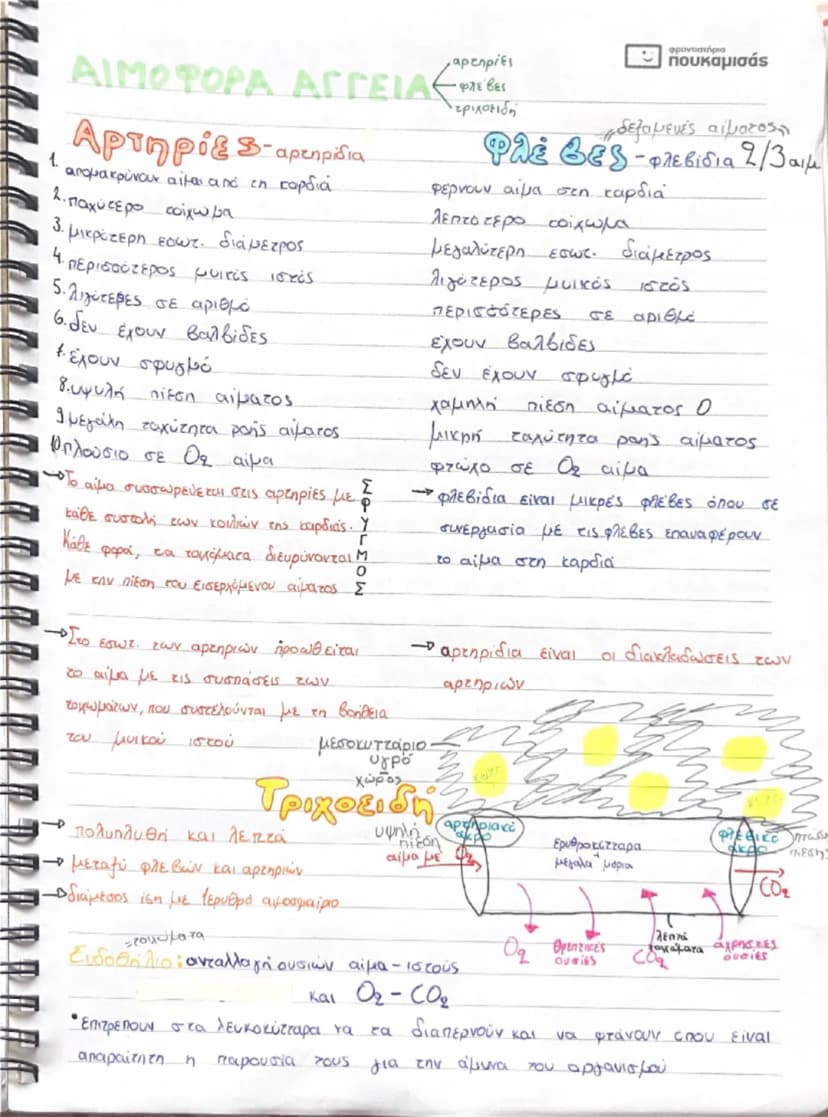 φροντιστήρια
πουκαμισάς
ΑΙΜΟΦΟΡΑ ΑΓΓΕΙΑ
αρτηρίες
φλέβες
τριχοειδή
Αρτηρίες-αρτηρίδια
1. απομακρύνουν αίμα από τη καρδιά
2.παχύτερο τοίχωμα
3.μικρότερη εσωτ. διάμετρος
4.περισσότερος μυικός ιστός
5.λιγότερες σε αριθμό
6.δεν έχουν βαλβίδες
7.έχουν σφυγμό
8.υψηλή πίεση αίματος
9.μεγάλη ταχύτητα ροής αίματος
10.πλούσιο σε O2 αίμα
→Το αίμα συσσωρεύεται στις αρτηρίες με
κάθε συστολή των κοιλιών της καρδιάς.
Κάθε φορά, τα τοιχώματα διευρύνονται
με την πίεση του εισερχόμενου αίματος
ΣΦΥΓΜΟΣ
→Στο εσωτ. των αρτηριών προωθείται
το αίμα με τις συσπάσεις των
τοιχωμάτων, που συστελούνται με τη βοήθεια
του μυικού ιστού
"δεξαμενές αίματος"
Φλέβες-φλεβίδια 2/3 αιμ
φέρνουν αίμα στη καρδιά
λεπτότερο τοίχωμα
μεγαλύτερη εσωτ. διάμετρος
λιγότερος μυικός ιστός
περισσότερες σε αριθμό
έχουν βαλβίδες
δεν έχουν σφυγμό
χαμηλή πίεση αίματος 0
μικρή ταχύτητα ροής αίματος
φτωχό σε O2 αίμα
→φλεβίδια είναι μικρές φλέβες όπου σε
συνεργασία με τις φλέβες επαναφέρουν
το αίμα στη καρδιά
→αρτηρίδια είναι οι διακλαδώσεις των
αρτηριών
μεσοκυττάριο
υγρό
χώρος
Τριχοειδή
→πολυπληθή και λεπτά
→μεταξύ φλεβών και αρτηριών
→διάμεσος ίση με 1ερυθρό αιμοσφαίριο
υψηλή
πίεση
αίμα με O2
αρτηριακό
άκρο
ερυθροκύτταρα
+
μεγάλα μόρια
φλεβικό
άκρο
πτώση
πίεσης
CO2
O2
θρεπτικές
ουσίες
CO2
λεπτά
τοιχώματα
άχρηστες
ουσίες
=τοιχώματα
Ενδοθήλιο: ανταλλαγή ουσιών αίμα-ιστούς
και O2-CO2
•Επιτρέπουν στα λευκοκύτταρα να τα διαπερνούν και να φτάνουν όπου είναι
απαραίτητη η παρουσία τους για την άμυνα του οργανισμού